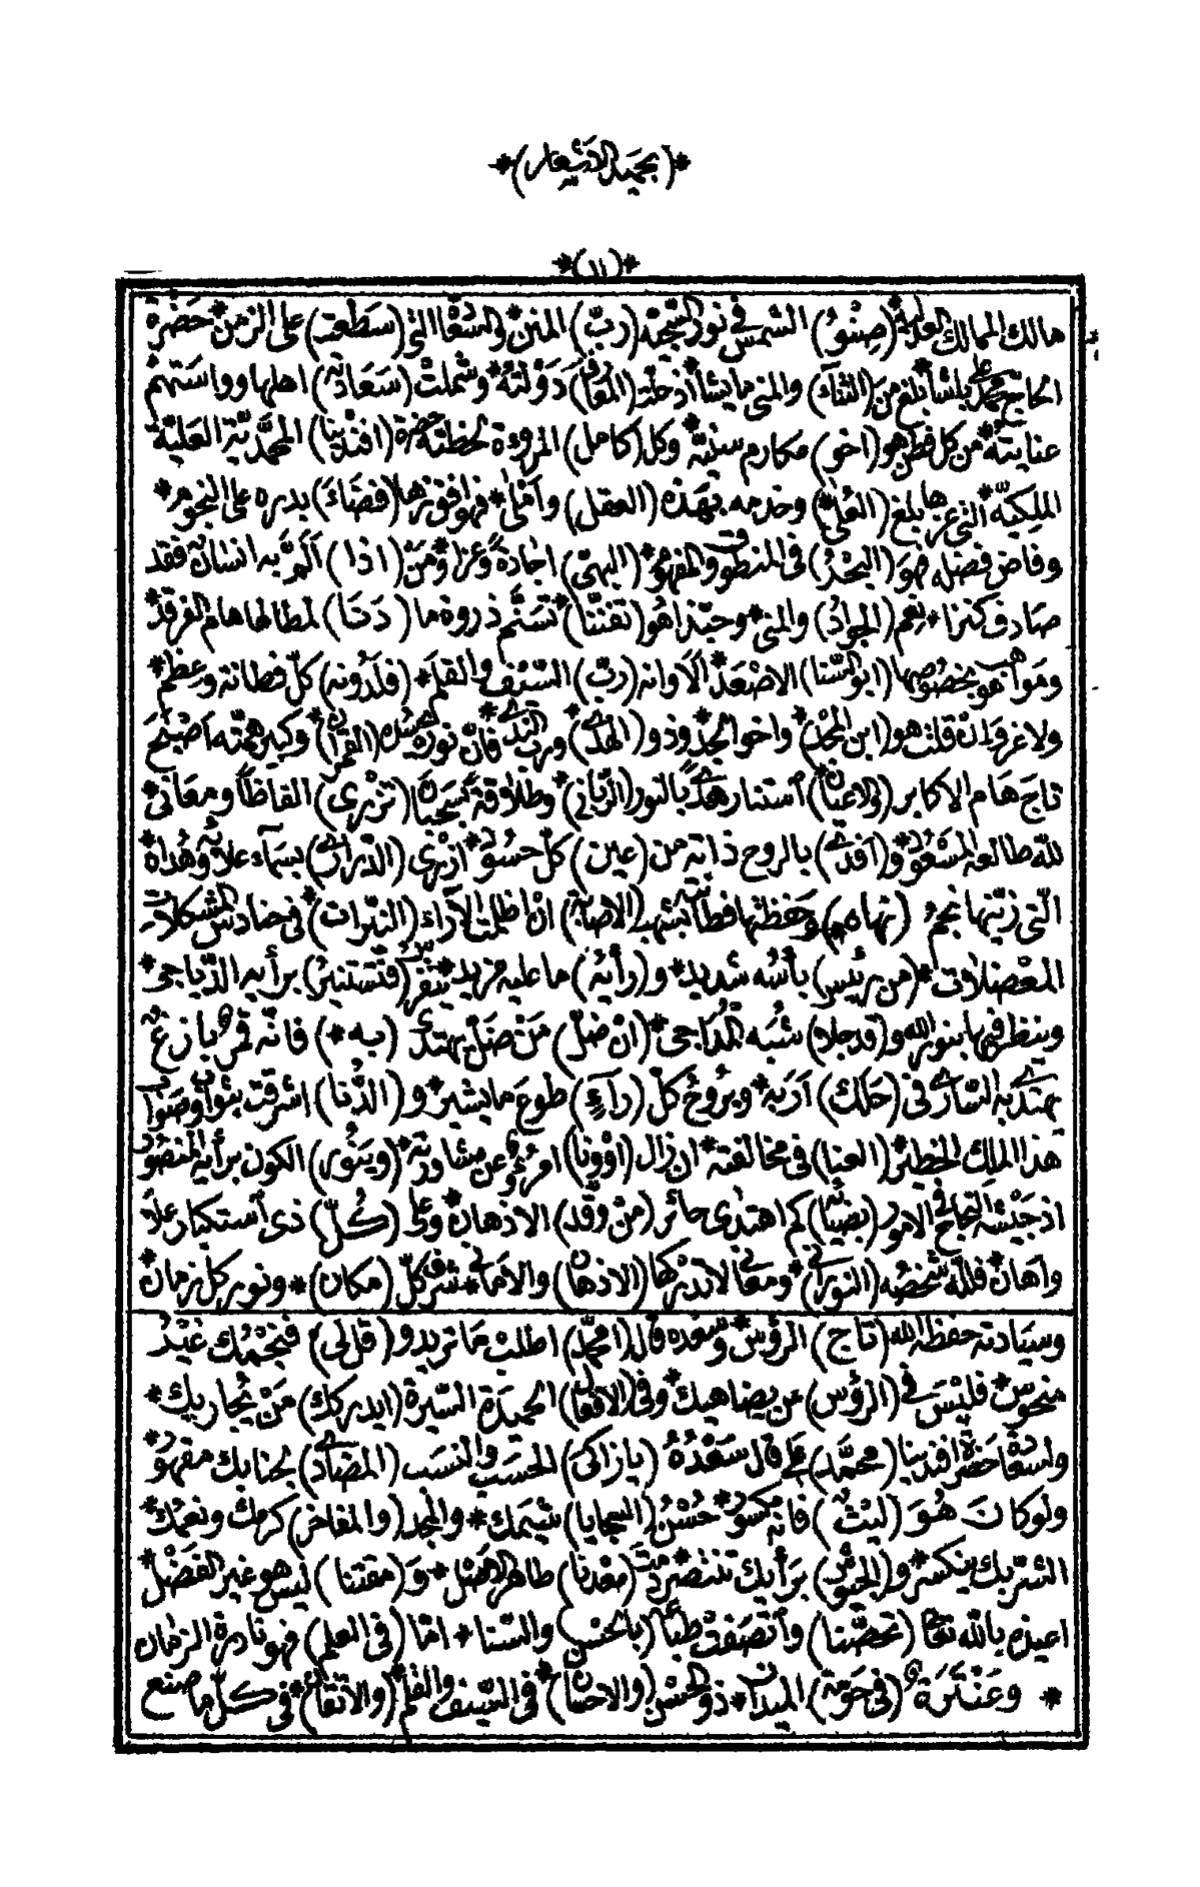 *(بحميد الاشعار)*
*(١١)*
مالك الممالك العلية (صِنْوُ) الشمس فى نور البهجة (ربّ) المنن * والسُعْدا التى (سَطَعت) على الزمن * حَضْرة
الحاج محمد على باشا * بلغ مِنَ (الثناء) والمنى ما يشا * أدخلت (المعارف) دَوْلته * وشملت (سَعَادته) اهلها وواستهم
عنايته * من كل فطن هو (اخو) مكارم سنيّة * وكل (كامل) المروءة لحظته حضرة (افندينا) المحمّديّة العَليّة *
الملِكيّة * التى عزها بلغ (العُلى) وخدمه بهذه (العقل) وأملى * فهو افق زها (فضَاءَ) بدره على النجوم *
وفاض فضله فهوَ (البَحْرُ) فى المنطوق والمفهوم * (البهىّ) اجادةً وعزا * ومَنْ (اذا) ألَمَّ به انسان فقد
صَادف كنزا * نِعم (الجوادُ) والمنى * وحبّذا هُو (تفننّا) تسَنَّم ذروة ما (دَحَا) لمطالها هام الفرقد *
ومَواهب هو بخصُوصها (ابو السّنا) الاصْعَد * ألا وانه (ربّ) السّيْف والقلم * (فلدُونه) كلّ فطانة وعِظم *
ولا غرو إنْ قلت هو (ابن المجد) * واخو المجد * وذو (الهدى) * وربّ الندى * فانّ نوره (القمران) * وكبير همّته أصْبَحَ
تاجَ هَام الاكابر (والاعيان) * أستنار هدىً بالنور (الرّبانى) * وطلاقة سَحْبان (تزْهى) الفاظًا ومعانى *
لله طالعه المسْعُود * و(أفدى) بالروح ذاته من (عين) كلّ حسُود * ازْهى (الدّرارى) بسماء علائه وهُداه *
التى زيّنها نجمُ (نهاه) وحفظتها فطانته بشهب (الاصابة) انْ اظلمت الآراء (النيّرات) فى حنادس المشكلات
المعْضلات * (من رئيس) بأسُه شديد * و(رأيُهُ) ما عليه مزيد * (فتستنيرُ) برأيه الدّياجى *
وينظر فيها بنور الله و(قد جلا) شُبَه المُدَاجى * (انْ ضلّ) مَنْ ضَلّ يهتدى (به *) فانّه قمر بازغ
يَهتدى به السّارى فى (حَلَك) أدَبه * ويُروِّحُ كلّ (راءٍ) طوعَ ما يشير * و (الدُّنا) اشرقت
هذا الملِك الخطير * (العنا) فى مخالفته * ان زال (اوْونا) امرُؤٌ عن مشاورته * (ويَنُور) الكون برأيه المنصُور
اذ جَيْشه الناجح فى الامور (بضيائه) كم اهتدى حائر (منْ وقّد) الاذهان * وعلى (كُلّ) ذى أستكبار علا
وأهان * فلله شخصُه (النورانى) * ومعانى لا تدركها (الاذهان) والأمانى * شرف كلّ (مكان) * ونور كل زمان *
وسيادته حفظه الله (تاج) الرؤس * وسعْده قال (امحمّد) اطلبْ مَا تريد و (قل لى) فنجْمُك غيْرُ
منحوس * فليْسَ فى (الرؤس) من يضاهيك * وفى (الافعال) الحميدة السّيرة (ايدركك) مَنْ يُجاريك *
ولسعادة حَضرة افندينا (محمّد) على قال سَعْدُهُ (يا زاكى) الحسَب والنسَب (المضادّ) لجنابك مقهور
ولو كانَ هُوَ (ليْث) فانه مكسور * حُسْنُ (السجايا) شيَمك * والمجد (والمفاخر) كرمك ونعمك *
الشرّ بك ينكسر * و (الجيوش) برَأيك تنتصر * دمتَ (معْدنا) طاهر الاصْل * وَ (مقتنا) ليس هو غير الفضْل *
اعيذه بالله تعالى (تحصّنا) وأتصَفت طبْعًا (بالحسْن) والسّنا * امّا (فى العلم) فهو نادرة الزمان
* وعَنْتَرَة (فى حَوْمة) الميدان * ذو الحسْن (والاحسان) * فى السّيف والقلم * (والاتقان) * فى كلّ ما صنع